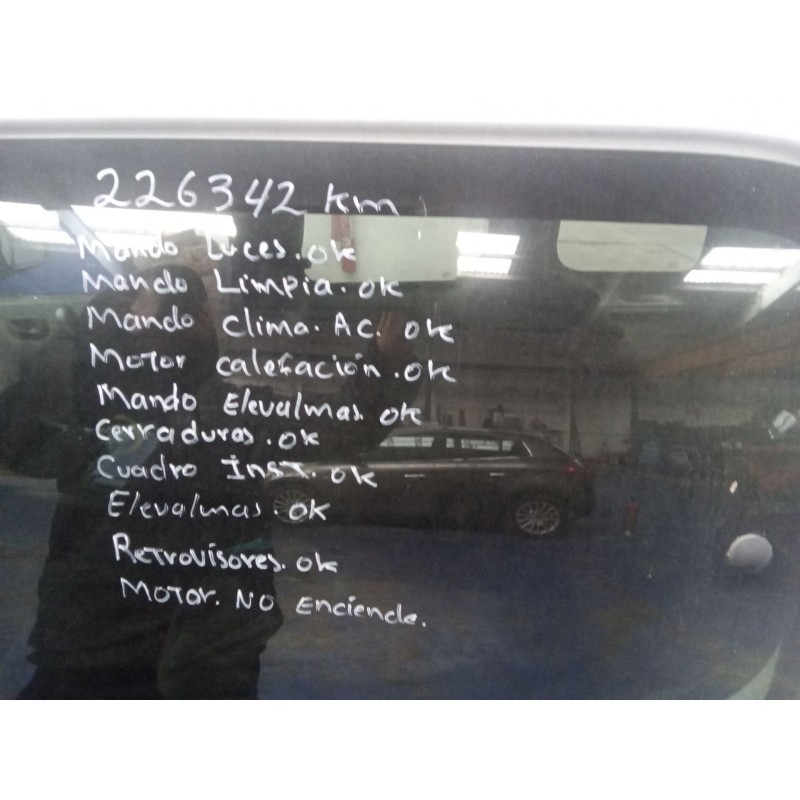 226342 km
Mando Luces. ok
Mando Limpia. ok
Mando Clima. AC. ok
Motor calefación. ok
Mando Elevalmas. ok
Cerraduras. ok
Cuadro Inst. ok
Elevalmas. ok
Retrovisores. ok
Motor. NO Enciende.